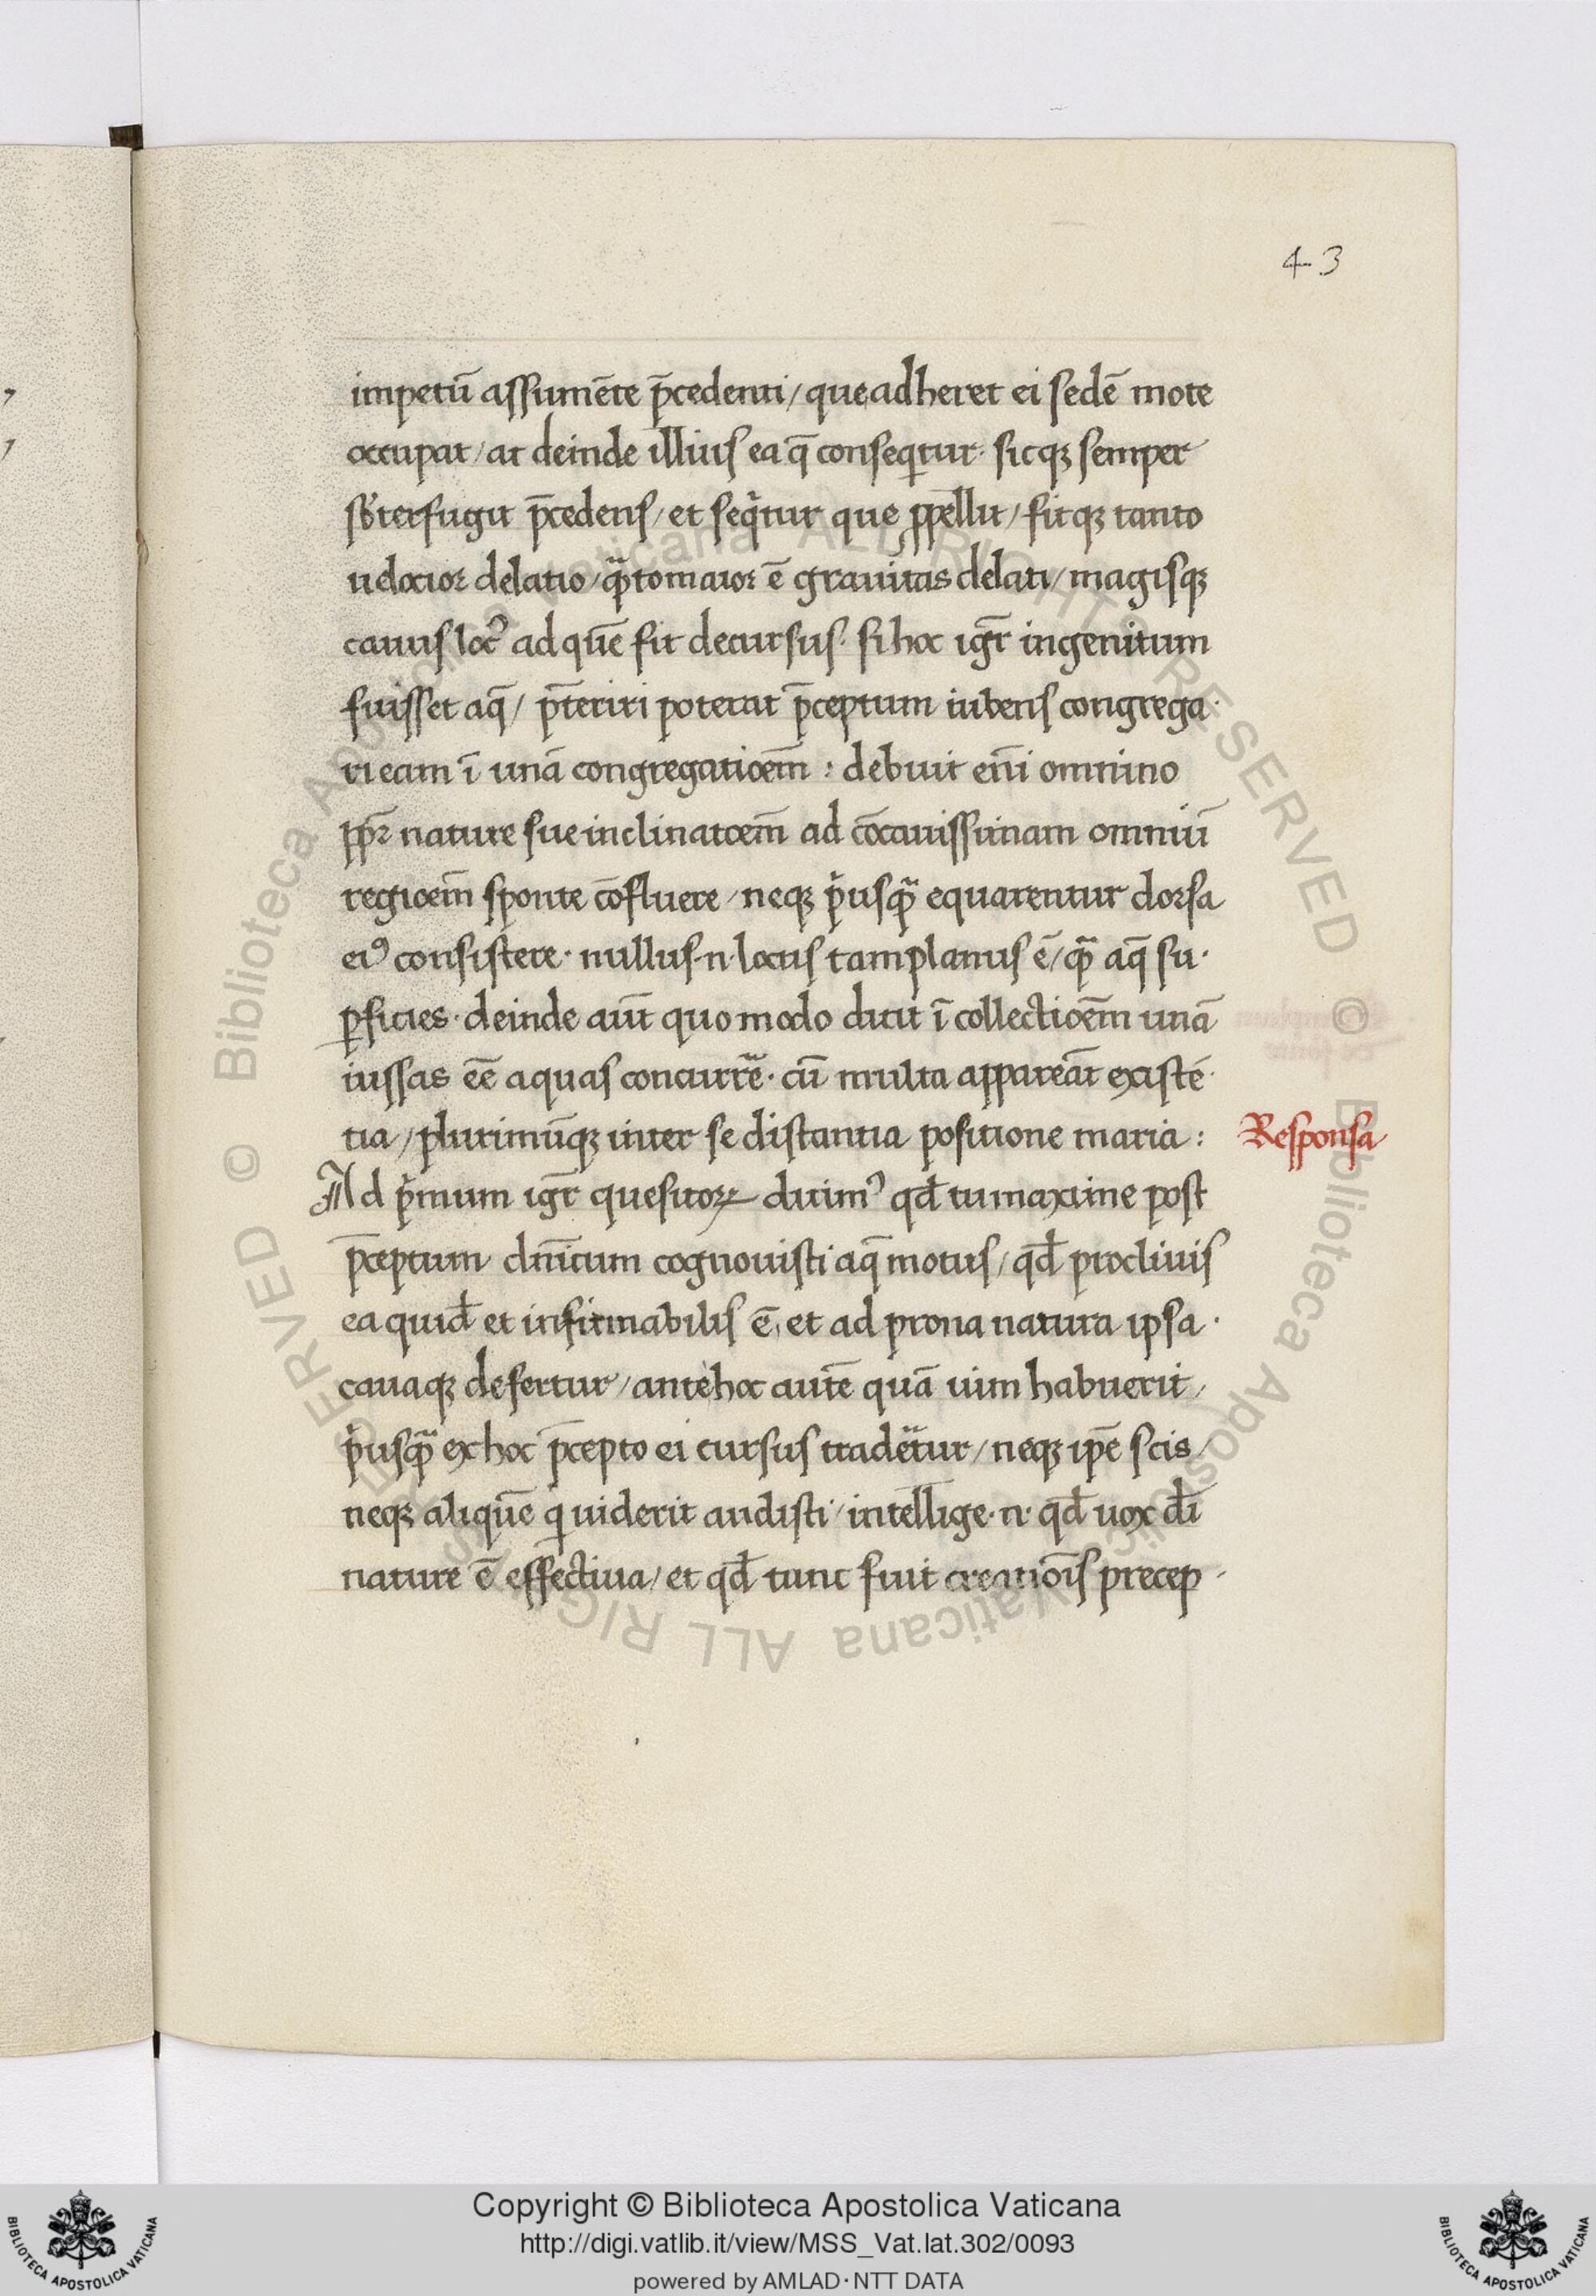 43
impetū assumēte p̄cedenti / que adheret ei sedē mote
occupat / at deinde illius ea q̄ conseqͥtur · sicqꝫ semper
sb̕terfugit p̄cedens / et seqͥtur que ꝓpellit / fitqꝫ tanto
uelocior delatio / qᷓto maior ē grauitas delati / magisqꝫ
cauus locꝰ ad quē fit decursus · si hoc igr̄ ingenitum
fuisset aq̄ / p̄teriri poterat p̄ceptum iubens congrega·
ri eam ī unā congregatioem̄ : debuit eni̅ omnino
ꝓpꝛ̄ nature sue inclinatoem̄ ad cōcauissimam omniū
regioem̄ sponte cōfluere / neqꝫ pͥusqᷓ equarentur dorsa
eiꝰ consistere · nullus ·n· locus tam planus ē / qᷓ aq̄ su·
ꝑficies · deinde aut̄ quo modo dicit ī collectioem̄ unā
iussas eē aquas concurrᷓe · cū multa appareāt existē·
tia / plurimūqꝫ inter se distantia positione maria :
Responsa
Ad pͥmum igr̄ quesitoꝝ dicimꝰ qđ tu maxime post
p̄ceptum dn̄icum cognouisti aq̄ motus / qđ procliuis
ea quiđ et infirmabilis ē, et ad prona natura ipsa ·
cauaqꝫ defertur / ante hoc autē quā uim habuerit /
pͥusqᷓ ex hoc p̄cepto ei cursus tradeᷓtur / neqꝫ ipē scis /
neqꝫ aliquē qͥ uiderit audisti / intell̄ige ·n· qđ uox di̅
nature ē effectiua / et qđ tunc fuit creatioīs precep ·
Copyright © Biblioteca Apostolica Vaticana
http://digi.vatlib.it/view/MSS_Vat.lat.302/0093
powered by AMLAD·NTT DATA